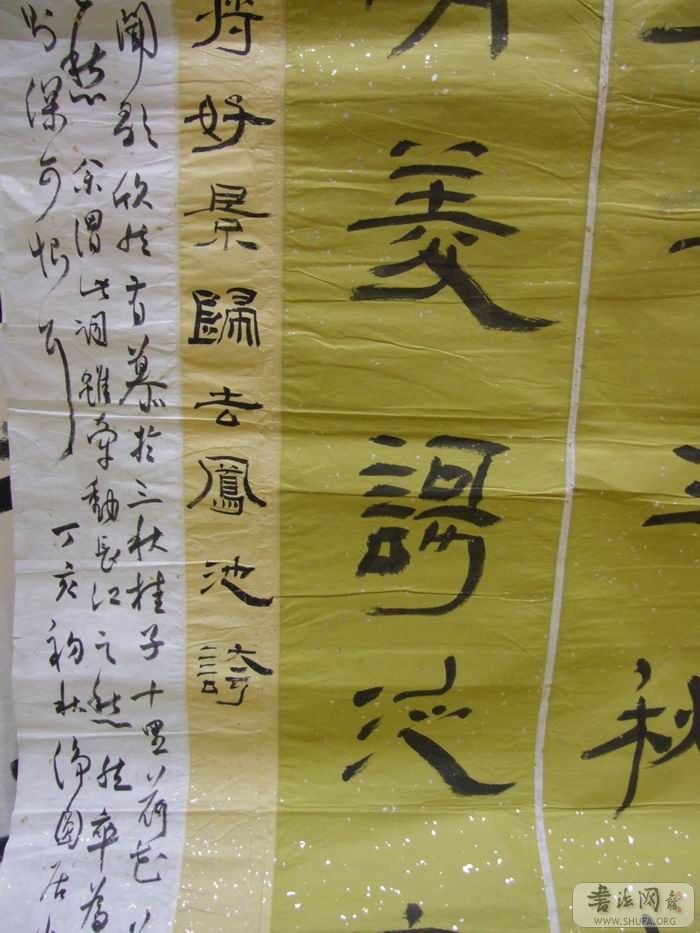 三秋
菱謌泛
將好景歸去鳳池誇
聞歌欣然有慕於三秋桂子十里荷花
愁余謂此詞雖牽動長江之愁然卒為
深可恨耳
丁亥初秋淨圓居
書法网
WWW.SHUFA.ORG